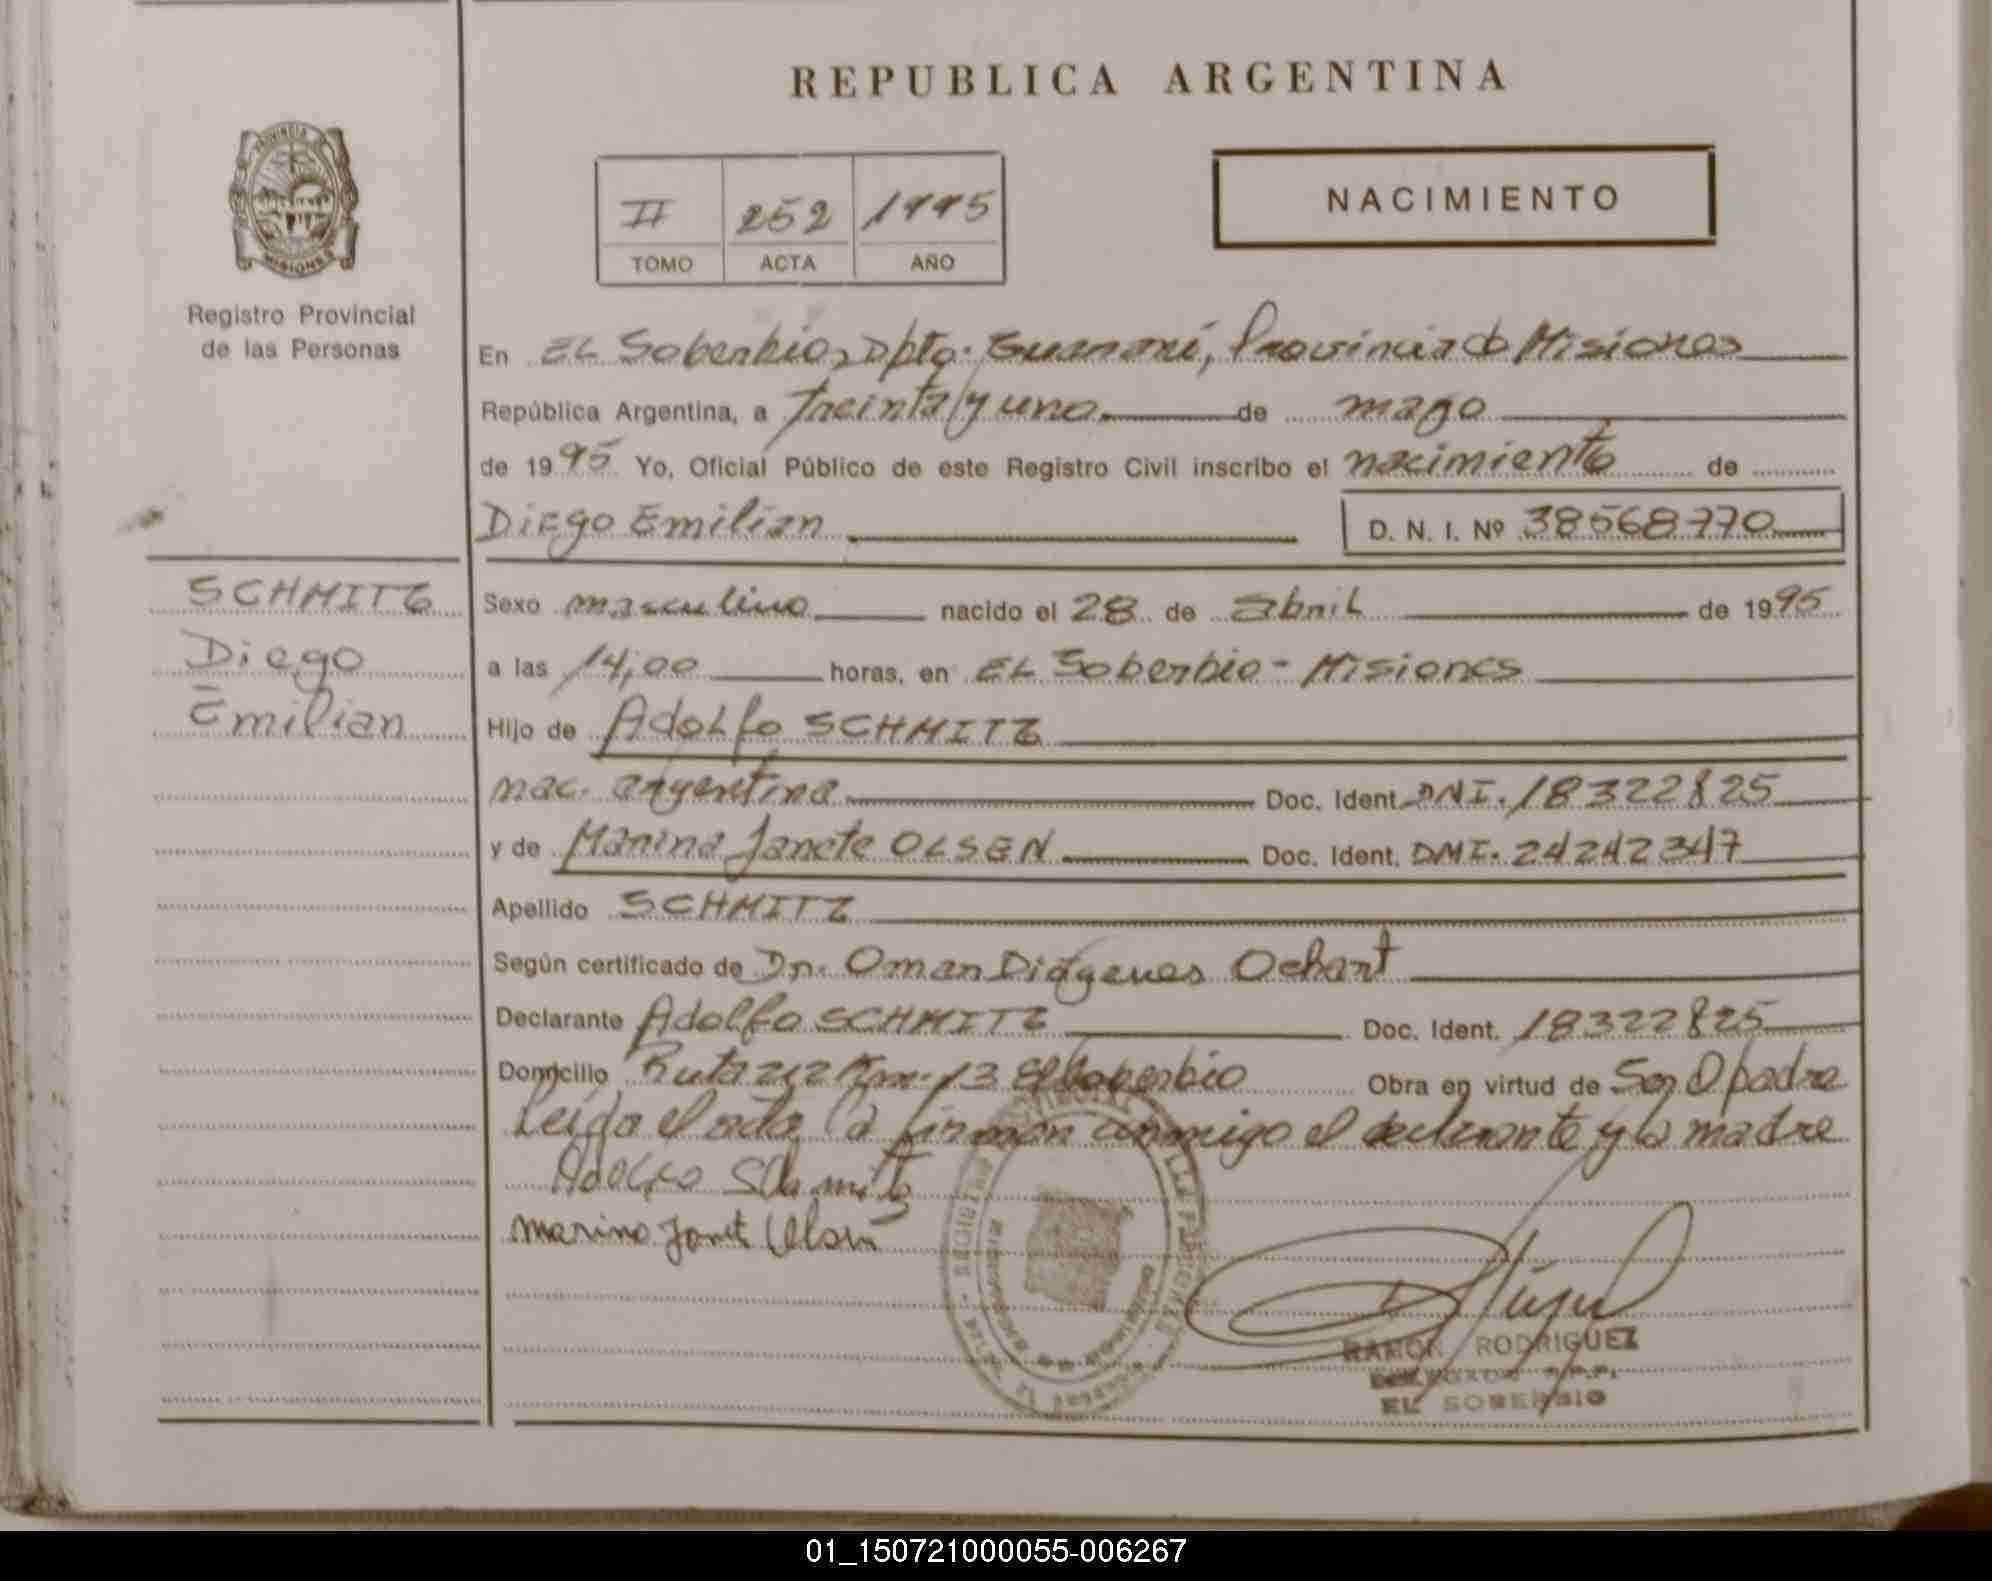 REPUBLICA ARGENTINA
PROVINCIA
MISIONES
Registro Provincial
de las Personas
II 252 1995
TOMO ACTA AÑO
NACIMIENTO
En EL Soberbio, Dpto. Guaraní, Provincia de Misiones
República Argentina, a treinta y uno de mayo
de 1995 Yo, Oficial Público de este Registro Civil inscribo el nacimiento de
Diego Emilian D. N. I. Nº 38568770
SCHMITZ
Diego
Emilian
Sexo masculino nacido el 28 de abril de 1995
a las 14,00 horas, en EL Soberbio - Misiones
Hijo de Adolfo SCHMITZ
nac. argentina Doc. Ident. DNI. 18322825
y de Marina Janete OLSEN Doc. Ident. DNI. 24242347
Apellido SCHMITZ
Según certificado de Dr. Omar Diógenes Ochart
Declarante Adolfo SCHMITZ Doc. Ident. 18322825
Domicilio Ruta 212 Km. 13 El Soberbio Obra en virtud de Ser O padre
Leida el acta la firman conmigo el declarante y la madre
Adolfo Schmitz
Marina Janet Olsen
RAMON RODRIGUEZ
EL SOBERBIO
01_150721000055-006267